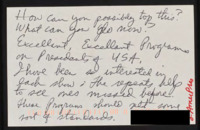 How can you possibly top this?
What can you do now?
Excellent, Excellent Programs
on Presidents of U.S.A.
I have been so interested in
each show & the repeats help
to see ones missed before!
These Programs should set some
sort of Standards.